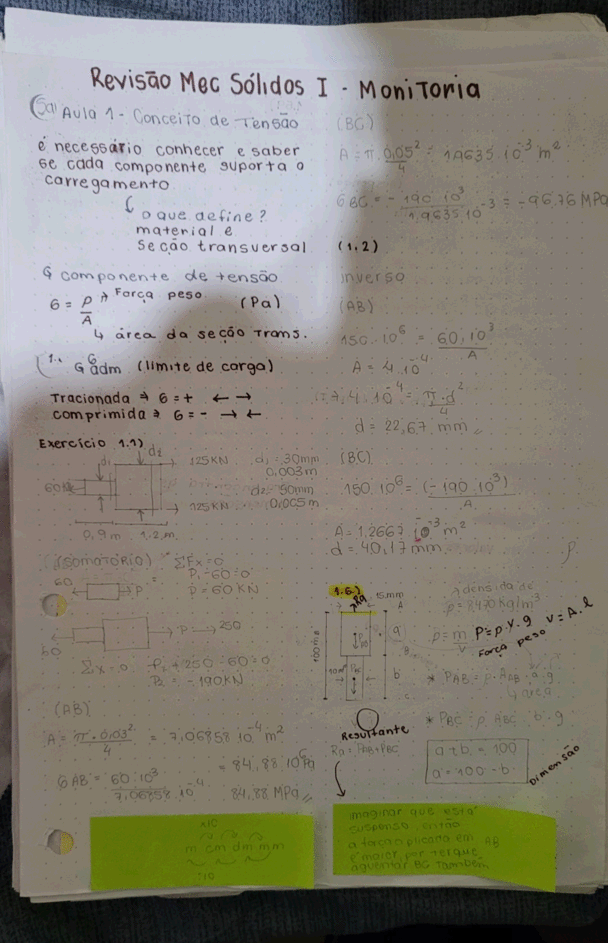 Revisão Mec Sólidos I - Monitoria
Aula 1 - Conceito de Tensão
é necessário conhecer e saber
se cada componente suporta o
carregamento
o que define?
material e
seção transversal
σ componente de tensão
σ = P → Força peso (Pa)
A
↳ área da seção trans.
1. σ adm (limite de carga)
Tracionada ⇒ σ = + ← →
comprimida ⇒ σ = - → ←
Exercício 1.1)
d1 d2
125KN
60
125KN
d1 = 30mm
0,003m
d2 = 50mm
0,005m
0,9m 1.2.m
(SOMATÓRIA) ΣFx=0
P1-60=0
P=60KN
60 P
P 250
60
Σx=0 -P2+250-60=0
P2=-190KN
(AB)
A = π.0,03² = 7,06858.10⁻⁴ m²
4
σAB = 60.10³ = 84,88 10⁶ Pa
7,06858.10⁻⁴ 84,88 MPa
x10
m cm dm mm
÷10
(BC)
A = π.0,05² = 1,9635 10⁻³ m²
4
σBC = -190 10³ = -96,76 MPa
1,9635 10⁻³
(1.2)
inverso
(AB)
150.10⁶ = 60.10³
A
A = 4.10⁻⁴
4.10⁻⁴ = π.d²
4
d = 22,67 mm
(BC)
150.10⁶ = (-190.10³)
A
A = 1,2667.10⁻³ m²
d = 40,17mm
1.6)
Ra 15mm A
100m
a
B
10m
PBC
b
C
densidade
ρ = 8470 kg/m³
ρ = m
V
P=ρ.V.g V=A.l
Força peso
* PAB = ρ.AAB.a.g
↳ área
* PBC = ρ ABC.b.g
Resultante
Ra = PAB+PBC
a+b = 100
a = 100-b
Dimensão
imaginar que está
suspenso, então
a força aplicada em AB
é maior por ter que
aguentar BC também